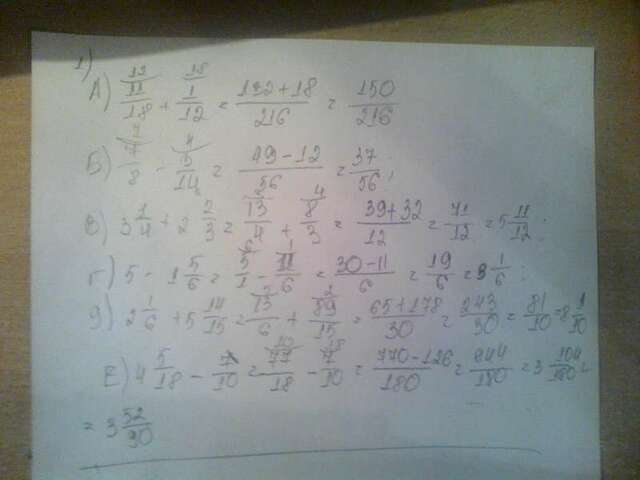 1)
А) 11/18 (12 + 1/12 (18 = 132+18/216 = 150/216
Б) 7/8 (7 - 3/14 (4 = 49-12/56 = 37/56;
В) 3 1/4 + 2 2/3 = 13/4 (3 + 8/3 (4 = 39+32/12 = 71/12 = 5 11/12;
г) 5 - 1 5/6 = 5/1 (6 - 11/6 (1 = 30-11/6 = 19/6 = 3 1/6;
д) 2 1/6 + 5 14/15 = 13/6 (5 + 89/15 (2 = 65+178/30 = 243/30 = 81/10 = 8 1/10
Е) 4 5/18 - 7/10 = 77/18 (10 - 7/10 (18 = 770-126/180 = 644/180 = 3 104/180 =
= 3 52/90